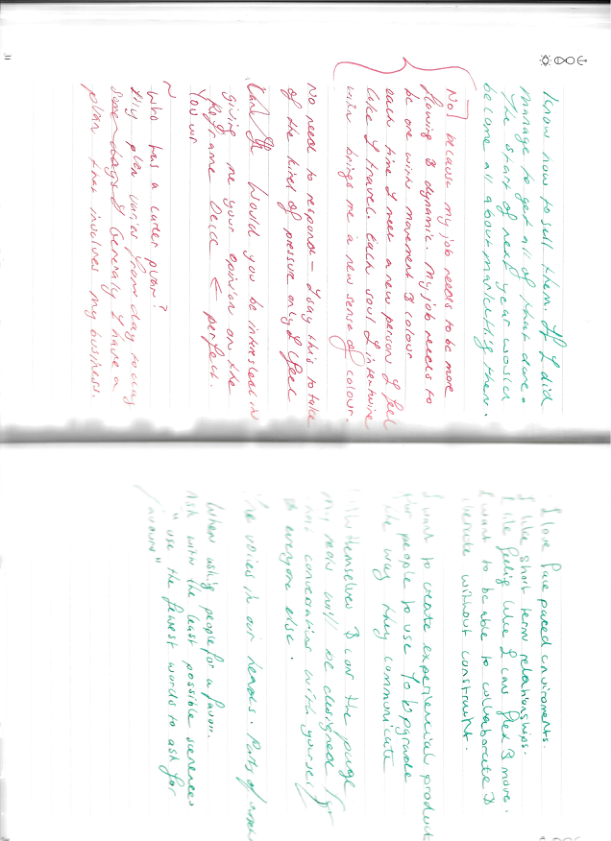 Know how to sell them. If I did
manage to get all of that done -
The start of next year would
become all about marketing them.
No because my job needs to be more
flowing & dynamic. My job needs to
be one with movement & colour
each time I meet a new person I feel
like I travel. Each soul I intertwine
with brings me a new sense of colour.
No need to respond - I say this to take
of the kind of pressure only I feel
Would you be interested in
giving me your opinion on the
Reframe Deck ← perfect.
~
Who has a career plan?
My plan varies from day to day
some days I Generally I have a
plan that involves my business.
I love fast paced enviroments.
I like short term relationships.
I like feeling like I can flex & move.
I want to be able to collaborate &
without constraint.
I want to create experiential product
for people to use to upgrade
the way they communicate
with themselves & can the
my will be designed for
conversation with yourself
& everyone else.
The voices in our heads. Parts of
When asking people for a favor.
Ask with the least possible sentences
"use the fewest words to ask for
favours"